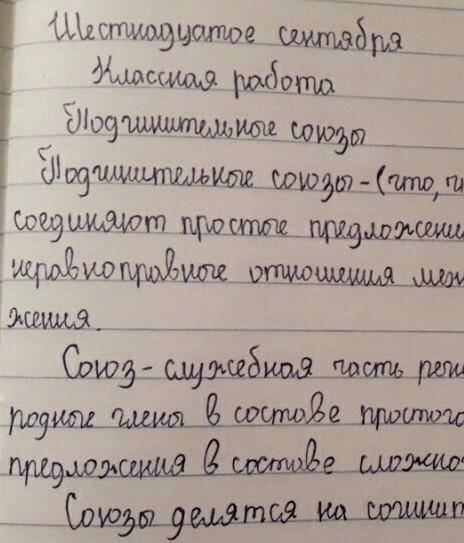 Шестнадцатое сентября
Классная работа
Подчинительные союзы
Подчинительные союзы - (что,
соединяют простые предложени
неравноправные отношения меж
жения.
Союз - служебная часть речи
родные члены в составе простого
предложения в составе сложно
Союзы делятся на сочинит